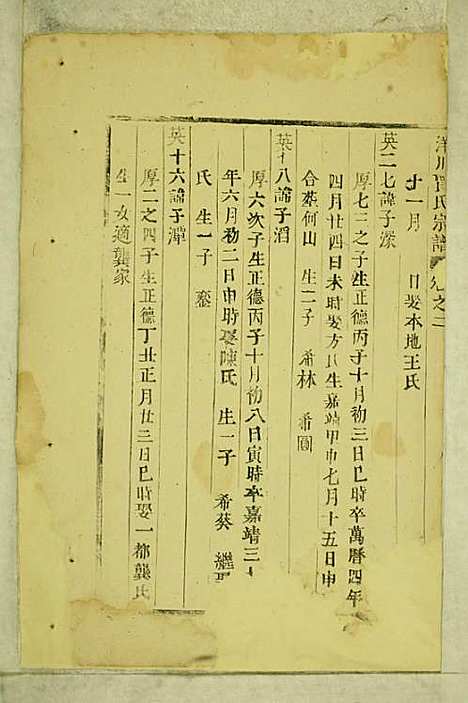 洋川賈氏宗譜 卷之二
十一月 日娶本地王氏
英二七諱子深
厚七三之子生正德丙子十月初三日巳時卒萬曆四年
四月廿四日未時娶方氏生嘉靖甲申七月十五日申
合葬何山 生二子 希林 希圓
英十八諱子滔
厚六次子生正德丙子十月初八日寅時卒嘉靖三十
年六月初二日申時娶陳氏 生一子 希葵 繼
氏 生一子
英十六諱子潭
厚二之四子生正德丁丑正月廿三日巳時娶一都龔氏
生一女適龔家